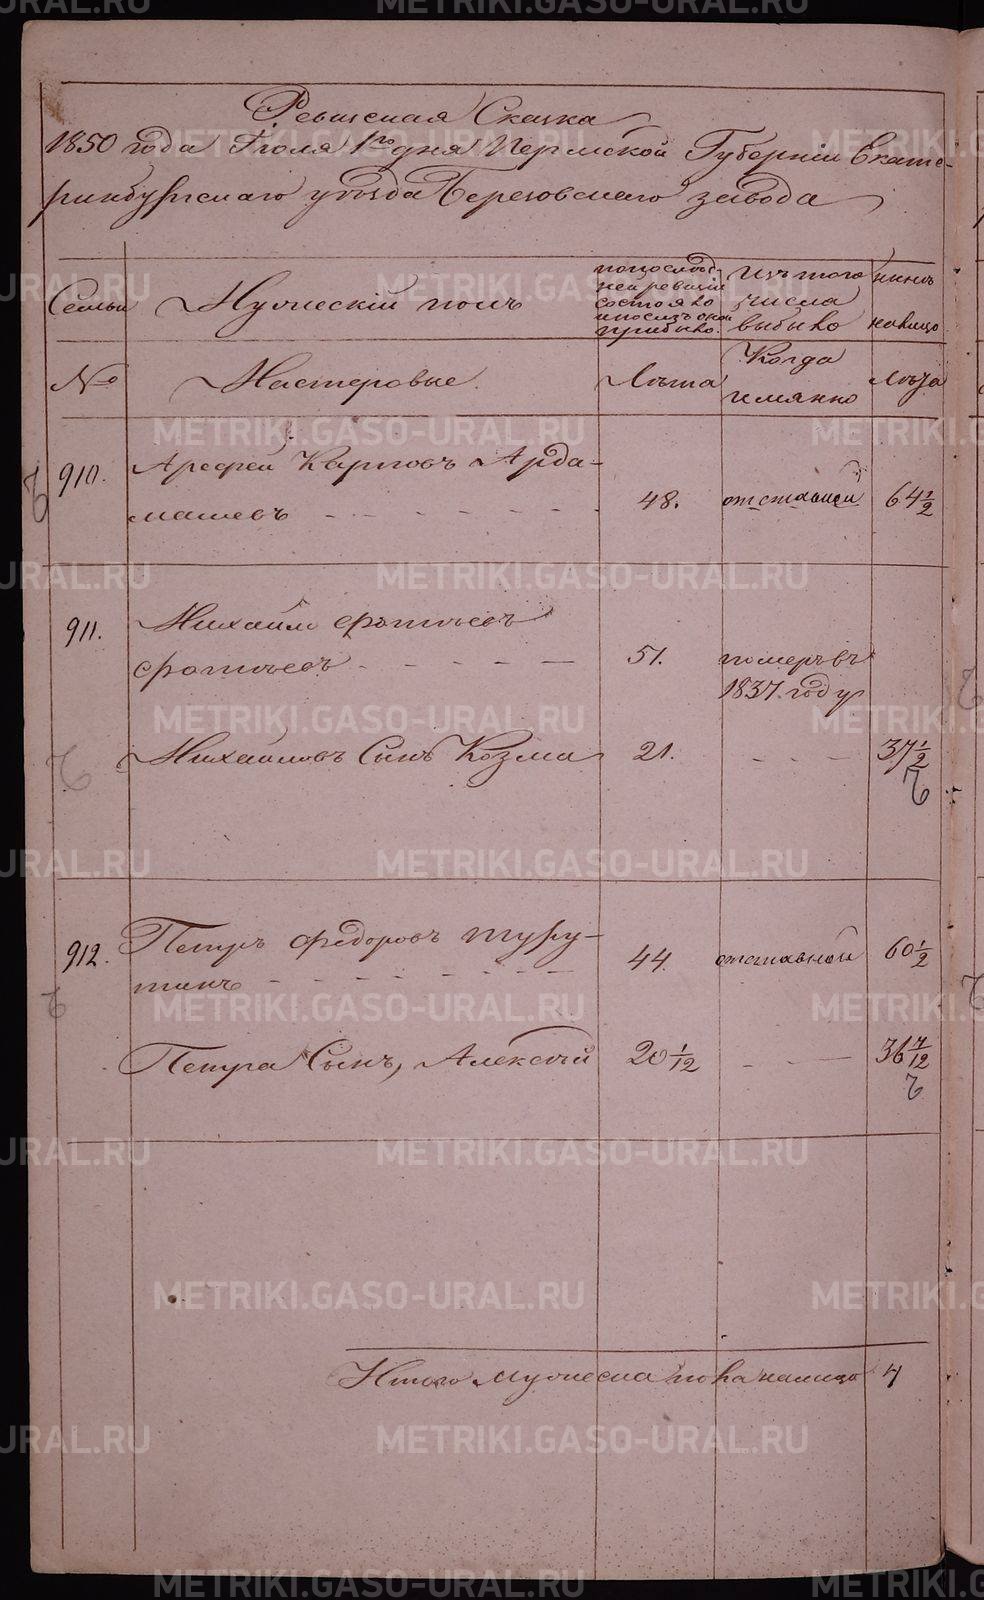 Ревизская Сказка
1850 года Іюля 1го дня Пермской Губерніи Екате-
ринбургскаго уѣзда Березовскаго завода
Семьи
Мужескій полъ
попослѣд-
ней ревизіи
состояло
и послѣ оной
прибыло.
Изъ того
числа
выбыло
нынѣ
налицо
№
Мастеровые.
Лѣта
Когда
имянно
Лѣта
910. Арефей Карповъ Арда-
машевъ - - - - - - - 48. отставной 64 1/2
911. Михаилъ Фотіевъ
Фотіевъ - - - - - 51. померъ въ
1837. году
Михайловъ Сынъ Козма 21. - - - 37 1/2
912. Петръ Федоровъ Туру-
тинъ - - - - - - - 44. отставной 60 1/2
Петра Сынъ, Алексѣй 20 1/12 - - 36 7/12
Итого мужеска пола налицо 4
METRIKI.GASO-URAL.RU